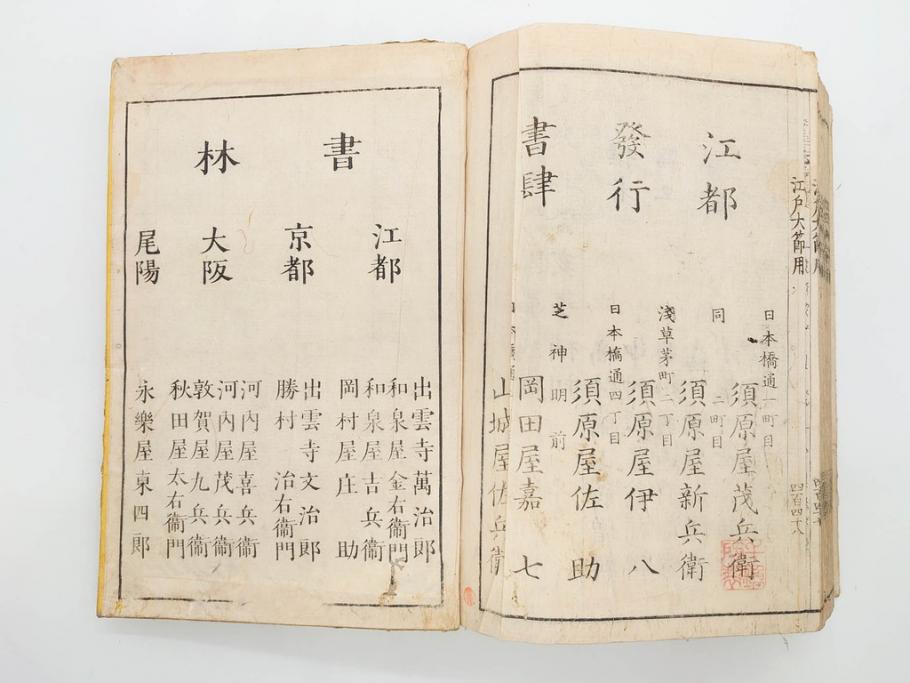 江戸大節用
江都
發行
書肆
日本橋通一町目
須原屋茂兵衛
同 二町目
須原屋新兵衛
淺草茅町二丁目
須原屋伊八
日本橋通四丁目
須原屋佐助
芝神明前
岡田屋嘉七
日本橋通
山城屋佐兵衛
書林
江都
出雲寺萬治郎
和泉屋金右衞門
和泉屋吉兵衞
岡村屋庄助
京都
出雲寺文治郎
勝村治右衞門
大阪
河内屋喜兵衞
河内屋茂兵衞
敦賀屋九兵衞
秋田屋太右衞門
尾陽
永樂屋東四郎